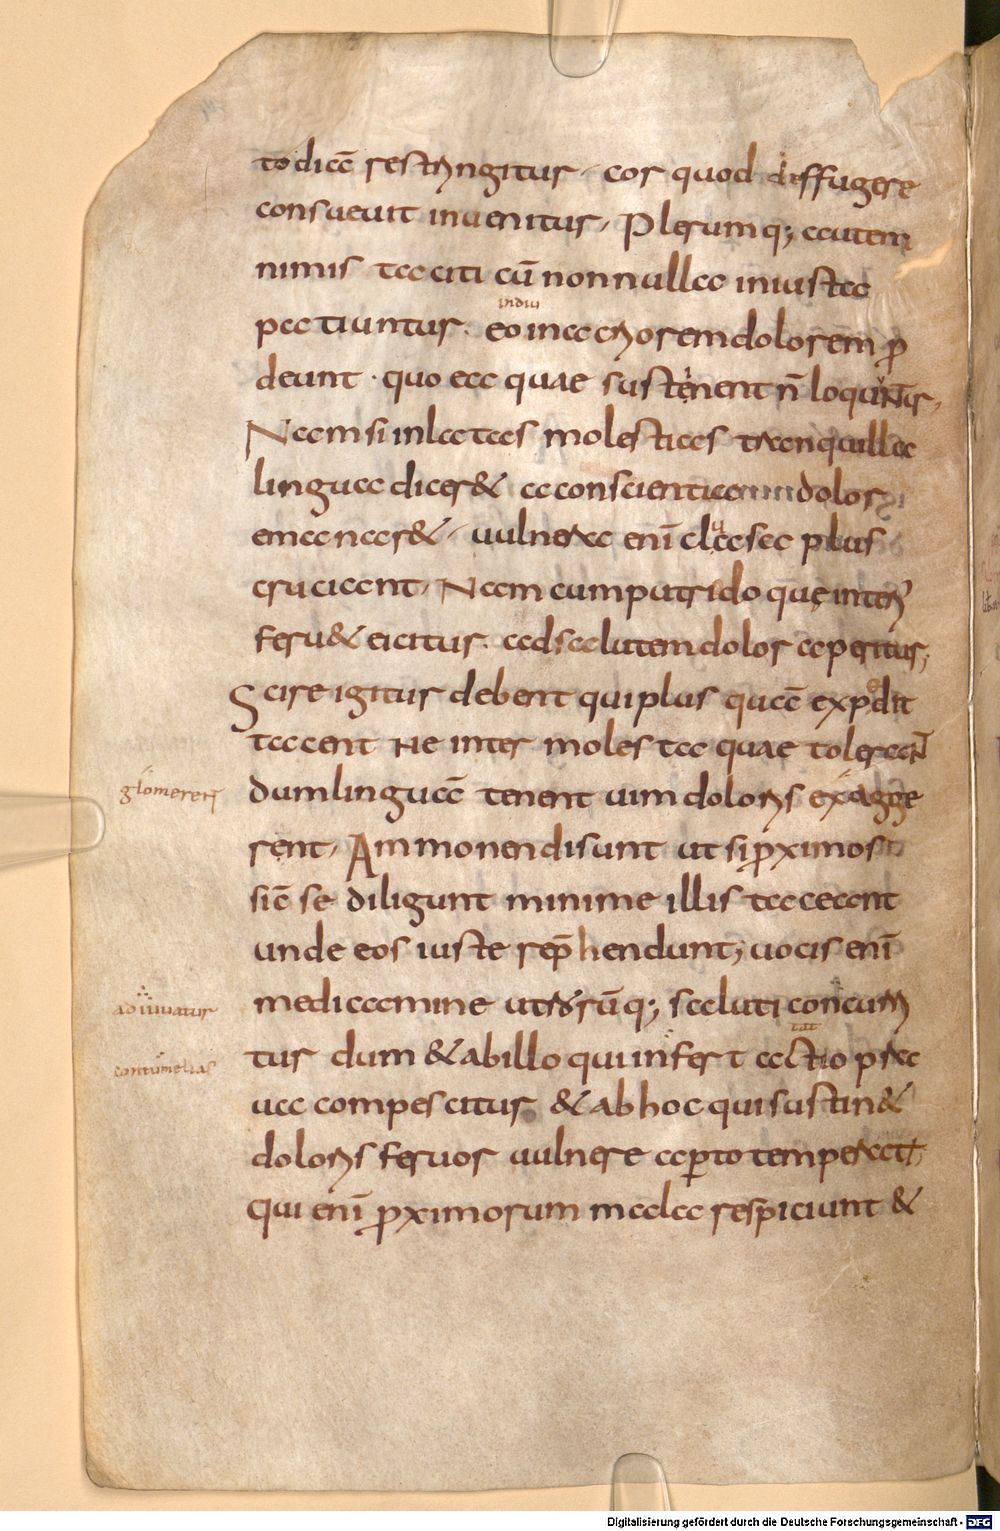 todiā restringitur, cor quod diffugere
consueuit inuenitur, Plerumq; autem
nimis taciti cū nonnulla iniusta
indui
patiuntur. eo in acriorem dolorem ꝓ
deunt. quo ea quae sustinent n̄ loquuntur,
Nam si inlatas molestias tranquilla
lingua dicer& a conscientia dolor
emanar&, uulnera enī clausa plus
cruciant, Nam cum putrido quę interi
feru& eicitur. ad salutem dolor aperitur;
Scire igitur debent qui plus quā expedit
tacent ne inter molesta quae tolerant
glomerent
dum linguā tenent uim doloris exagge
rent, Ammonendi sunt ut si ꝓximos
sic̄ se diligunt minime illis taceant
unde eos iuste rep̄hendunt; uocis enī
adiuuatur
medicamine utrorūq; saluti concurri
tur dum & ab illo qui infert actio pra
contumelias
ua compescitur & ab hoc qui sustin&
doloris feruor uulnere aꝑto temperatur,
qui enī ꝓximorum mala respiciunt &
Digitalisierung gefördert durch die Deutsche Forschungsgemeinschaft - DFG